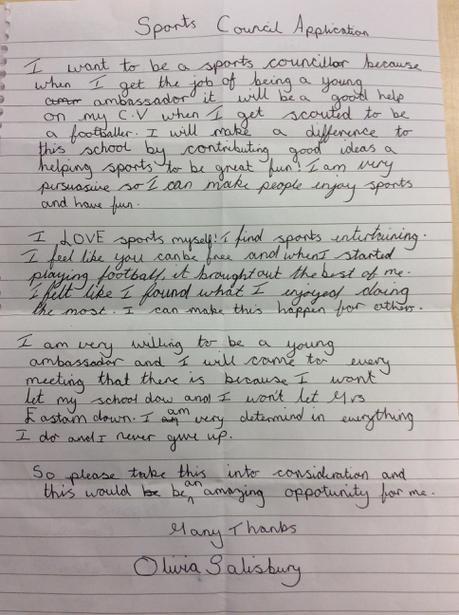 Sports Council Application
I want to be a sports councillor because
when I get the job of being a young
ambassador it will be a good help
on my C.V when I get scouted to be
a footballer. I will make a difference to
this school by contributing good ideas a
helping sports to be great fun! I am very
persuasive so I can make people enjoy sports
and have fun.
I LOVE sports myself! I find sports entertaining.
I feel like you can be free and when I started
playing football it brought out the best of me.
I felt like I found what I enjoyed doing
the most. I can make this happen for others.
I am very willing to be a young
ambassador and I will come to every
meeting that there is because I want
let my school dow and I won't let Mrs
Eastam down. I am very determind in everything
I do and I never give up.
So please take this into consideration and
this would be an amazing oppotunity for me.
Many Thanks
Olivia Salisbury